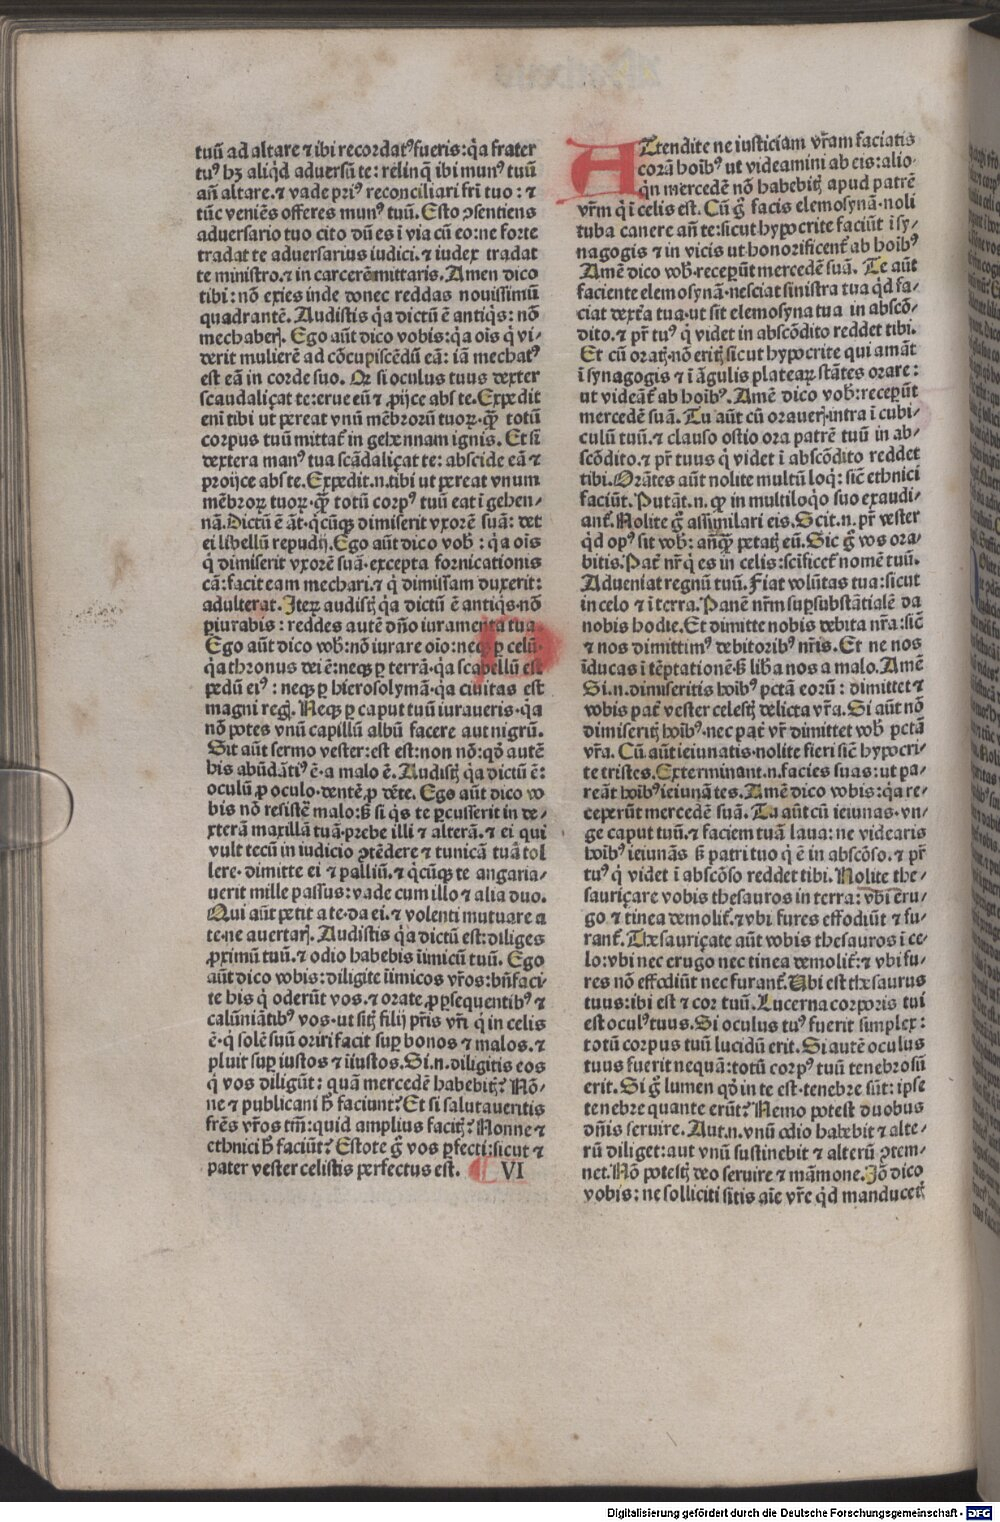 tuū ad altare ⁊ ibi recordatꝰ fueris: q̇a frater
tuꝰ hꝫ aliq̇d aduersū te: relinq̄ ibi munꝰ tuū
añ altare. ⁊ vade priꝰ reconciliari fr̄i tuo: ⁊
tūc veniēs offeres munꝰ tuū. Esto ↄsentiens
aduersario tuo cito dū es ī via cū eo: ne forte
tradat te aduersarius iudici. ⁊ iudex tradat
te ministro. ⁊ in carcerē mittaris. Amen dico
tibi: nō exies inde donec reddas nouissimū
quadrantē. Audistis q̇a dictū ē antiq̇s: nō
mechaberꝭ. Ego aūt dico vobis: q̇a oīs q̇ vi-
derit mulierē ad cōcupiscēdū eā: iā mechatꝰ
est eā in corde suo. Qꝛ si oculus tuus dexter
scandaliçat te: erue eū ⁊ ꝓijce abs te. Expedit
eni tibi ut pereat vnū mēbrorū tuoꝝ · q̄ꝫ totū
corpus tuū mittat̄ in gehennam ignis. Et si
dextera manꝰ tua scādaliçat te: abscide eā ⁊
proijce abs te. Expedit .n. tibi ut pereat vnum
mēbroꝝ tuoꝝ · q̄ꝫ totū corpꝰ tuū eat ī gehen-
nā. Dictū ē āt · q̇cūqꝫ dimiserit vxorē suā: det
ei libellū repudij. Ego aūt dico vob̄: q̇a oīs
q̇ dimiserit vxorē suā · excepta fornicationis
cā: facit eam mechari. ⁊ q̇ dimissam duxerit:
adulterat. Iteꝝ audistꝭ q̇a dictū ē antiq̇s · nō
ꝑiurabis: reddes autē dn̄o iuramenta tua
Ego aūt dico vob̄: nō iurare oīo: neqꝫ ꝑ celū ·
q̇a thronus dei ē: neqꝫ ꝑ terrā · q̇a scabellū est
pedū eiꝰ: neqꝫ ꝑ hierosolymā · q̇a ciuitas est
magni regꝭ. Neqꝫ ꝑ caput tuū iuraueris · q̇a
nō potes vnū capillū albū facere aut nigrū.
Sit aūt sermo vester: est est: non nō: qd̄ autē
his abūdātiꝰ ē · a malo ē. Audistꝭ q̇a dictū ē:
oculū ꝓ oculo · dentē ꝓ dēte. Ego aūt dico vo
bis nō resistē malo: s̄ si q̇s te ꝑcusserit in de-
xterā maxillā tuā · prebe illi ⁊ alterā. ⁊ ei qui
vult tecū in iudicio ↄtēdere ⁊ tunicā tuā tol
lere · dimitte ei ⁊ palliū. ⁊ q̇cūqꝫ te angaria-
uerit mille passus: vade cum illo ⁊ alia duo.
Qui aūt petit a te · da ei. ⁊ volenti mutuare a
te · ne auertarꝭ. Audistis q̇a dictū est: diliges
ꝓximū tuū. ⁊ odio habebis īimicū tuū. Ego
aūt dico vobis: diligite īimicos vr̄os: bn̄faci-
te his q̇ oderūt vos. ⁊ orate ꝓ ꝑsequentibꝰ ⁊
calūniātibꝰ vos · ut sitꝭ filij pr̄is vr̄i q̇ in celis
ē · q̇ solē suū oriri facit suꝑ bonos ⁊ malos. ⁊
pluit suꝑ iustos ⁊ īiustos. Si .n. diligitis eos
q̇ vos diligūt: quā mercedē habebitꝭ? Nō-
ne ⁊ publicani h̄ faciunt? Et si salutaueritis
frēs vr̄os tm̄: quid amplius facitꝭ? Nonne ⁊
ethnici h̄ faciūt? Estote g̊ vos ꝑfecti: sicut ⁊
pater vester celistis perfectus est. VI
ATtendite ne iusticiam vr̄am faciatis
corā hoībꝰ ut videamini ab eis: alio-
q̇n mercedē nō habebitꝭ apud patrē
vr̄m q̇ ī celis est. Cū g̊ facis elemosynā · noli
tuba canere añ te: sicut hypocrite faciūt ī sy-
nagogis ⁊ in vicis ut honorificent̄ ab hoībꝰ
Amē dico vob̄ · receperūt mercedē suā. Te aūt
faciente elemosynā · nesciat sinistra tua q̇d fa-
ciat dextra tua · ut sit elemosyna tua in abscō-
dito. ⁊ pr̄ tuꝰ q̇ videt in abscōdito reddet tibi.
Et cū oratꝭ · nō eritꝭ sicut hypocrite qui amāt
ī synagogis ⁊ ī āgulis plateaꝝ stātes orare:
ut videāt̄ ab hoībꝰ. Amē dico vob̄: receperūt
mercedē suā. Tu aūt cū orauerꝭ · intra ī cubi-
culū tuū. ⁊ clauso ostio ora patrē tuū in ab-
scōdito. ⁊ pr̄ tuus q̇ videt ī abscōdito reddet
tibi. Orātes aūt nolite multū loq̇: sic̄ ethnici
faciūt. Putāt .n. qꝙ in multiloq̇o suo exaudi-
ant̄. Nolite g̊ assimilari eis. Scit .n. pr̄ vester
q̇d opꝰ sit vob̄: añq̄ꝫ petatꝭ eū. Sic g̊ vos ora-
bitis. Pat̄ nr̄ q̇ es in celis: scīficet̄ nomē tuū.
Adueniat regnū tuū. Fiat volūtas tua: sicut
in celo ⁊ ī terra. Panē nr̄m suꝑsubstātialē da
nobis hodie. Et dimitte nobis debita nr̄a: sic̄
⁊ nos dimittimꝰ debitoribꝰ nr̄is. Et ne nos
īducas ī tēptationē · s̄ lib̄a nos a malo. Amē
Si .n. dimiseritis hoībꝰ pctā eorū: dimittet ⁊
vobis pat̄ vester celestꝭ delicta vr̄a. Si aūt nō
dimiseritꝭ hoībꝰ · nec pat̄ vr̄ dimittet vob̄ pctā
vr̄a. Cū aūt ieiunatis · nolite fieri sic̄ hypocri-
te tristes. Exterminant .n. facies suas: ut pa-
reāt hoībꝰ ieiunātes. Amē dico vobis: q̇a re-
ceperūt mercedē suā. Tu aūt cū ieiunas · vn-
ge caput tuū. ⁊ faciem tuā laua: ne videaris
hoībꝰ ieiunās s̄ patri tuo q̇ ē in abscōso. ⁊ pr̄
tuꝰ q̇ videt ī abscōso reddet tibi. Nolite the-
sauriçare vobis thesauros in terra: vbi eru-
go ⁊ tinea demolit̄. ⁊ vbi fures effodiūt ⁊ fu-
rant̄. Thesauriçate aūt vobis thesauros ī ce-
lo: vbi nec erugo nec tinea demolit̄: ⁊ vbi fu-
res nō effodiūt nec furant̄. Vbi est thesaurus
tuus: ibi est ⁊ cor tuū. Lucerna corporis tui
est oculꝰ tuus. Si oculus tuꝰ fuerit simplex:
totū corpus tuū lucidū erit. Si autē oculus
tuus fuerit nequā: totū corpꝰ tuū tenebrosū
erit. Si g̊ lumen qd̄ in te est · tenebre sūt: ipse
tenebre quante erūt? Nemo potest duobus
dn̄is seruire. Aut .n. vnū odio habebit ⁊ alte-
rū diliget: aut vnū sustinebit ⁊ alterū ↄtem-
net. Nō potestꝭ deo seruire ⁊ māmone. Iō dico
vobis: ne solliciti sitis aīe vr̄e q̇d manducetꝭ
Digitalisierung gefördert durch die Deutsche Forschungsgemeinschaft - DFG